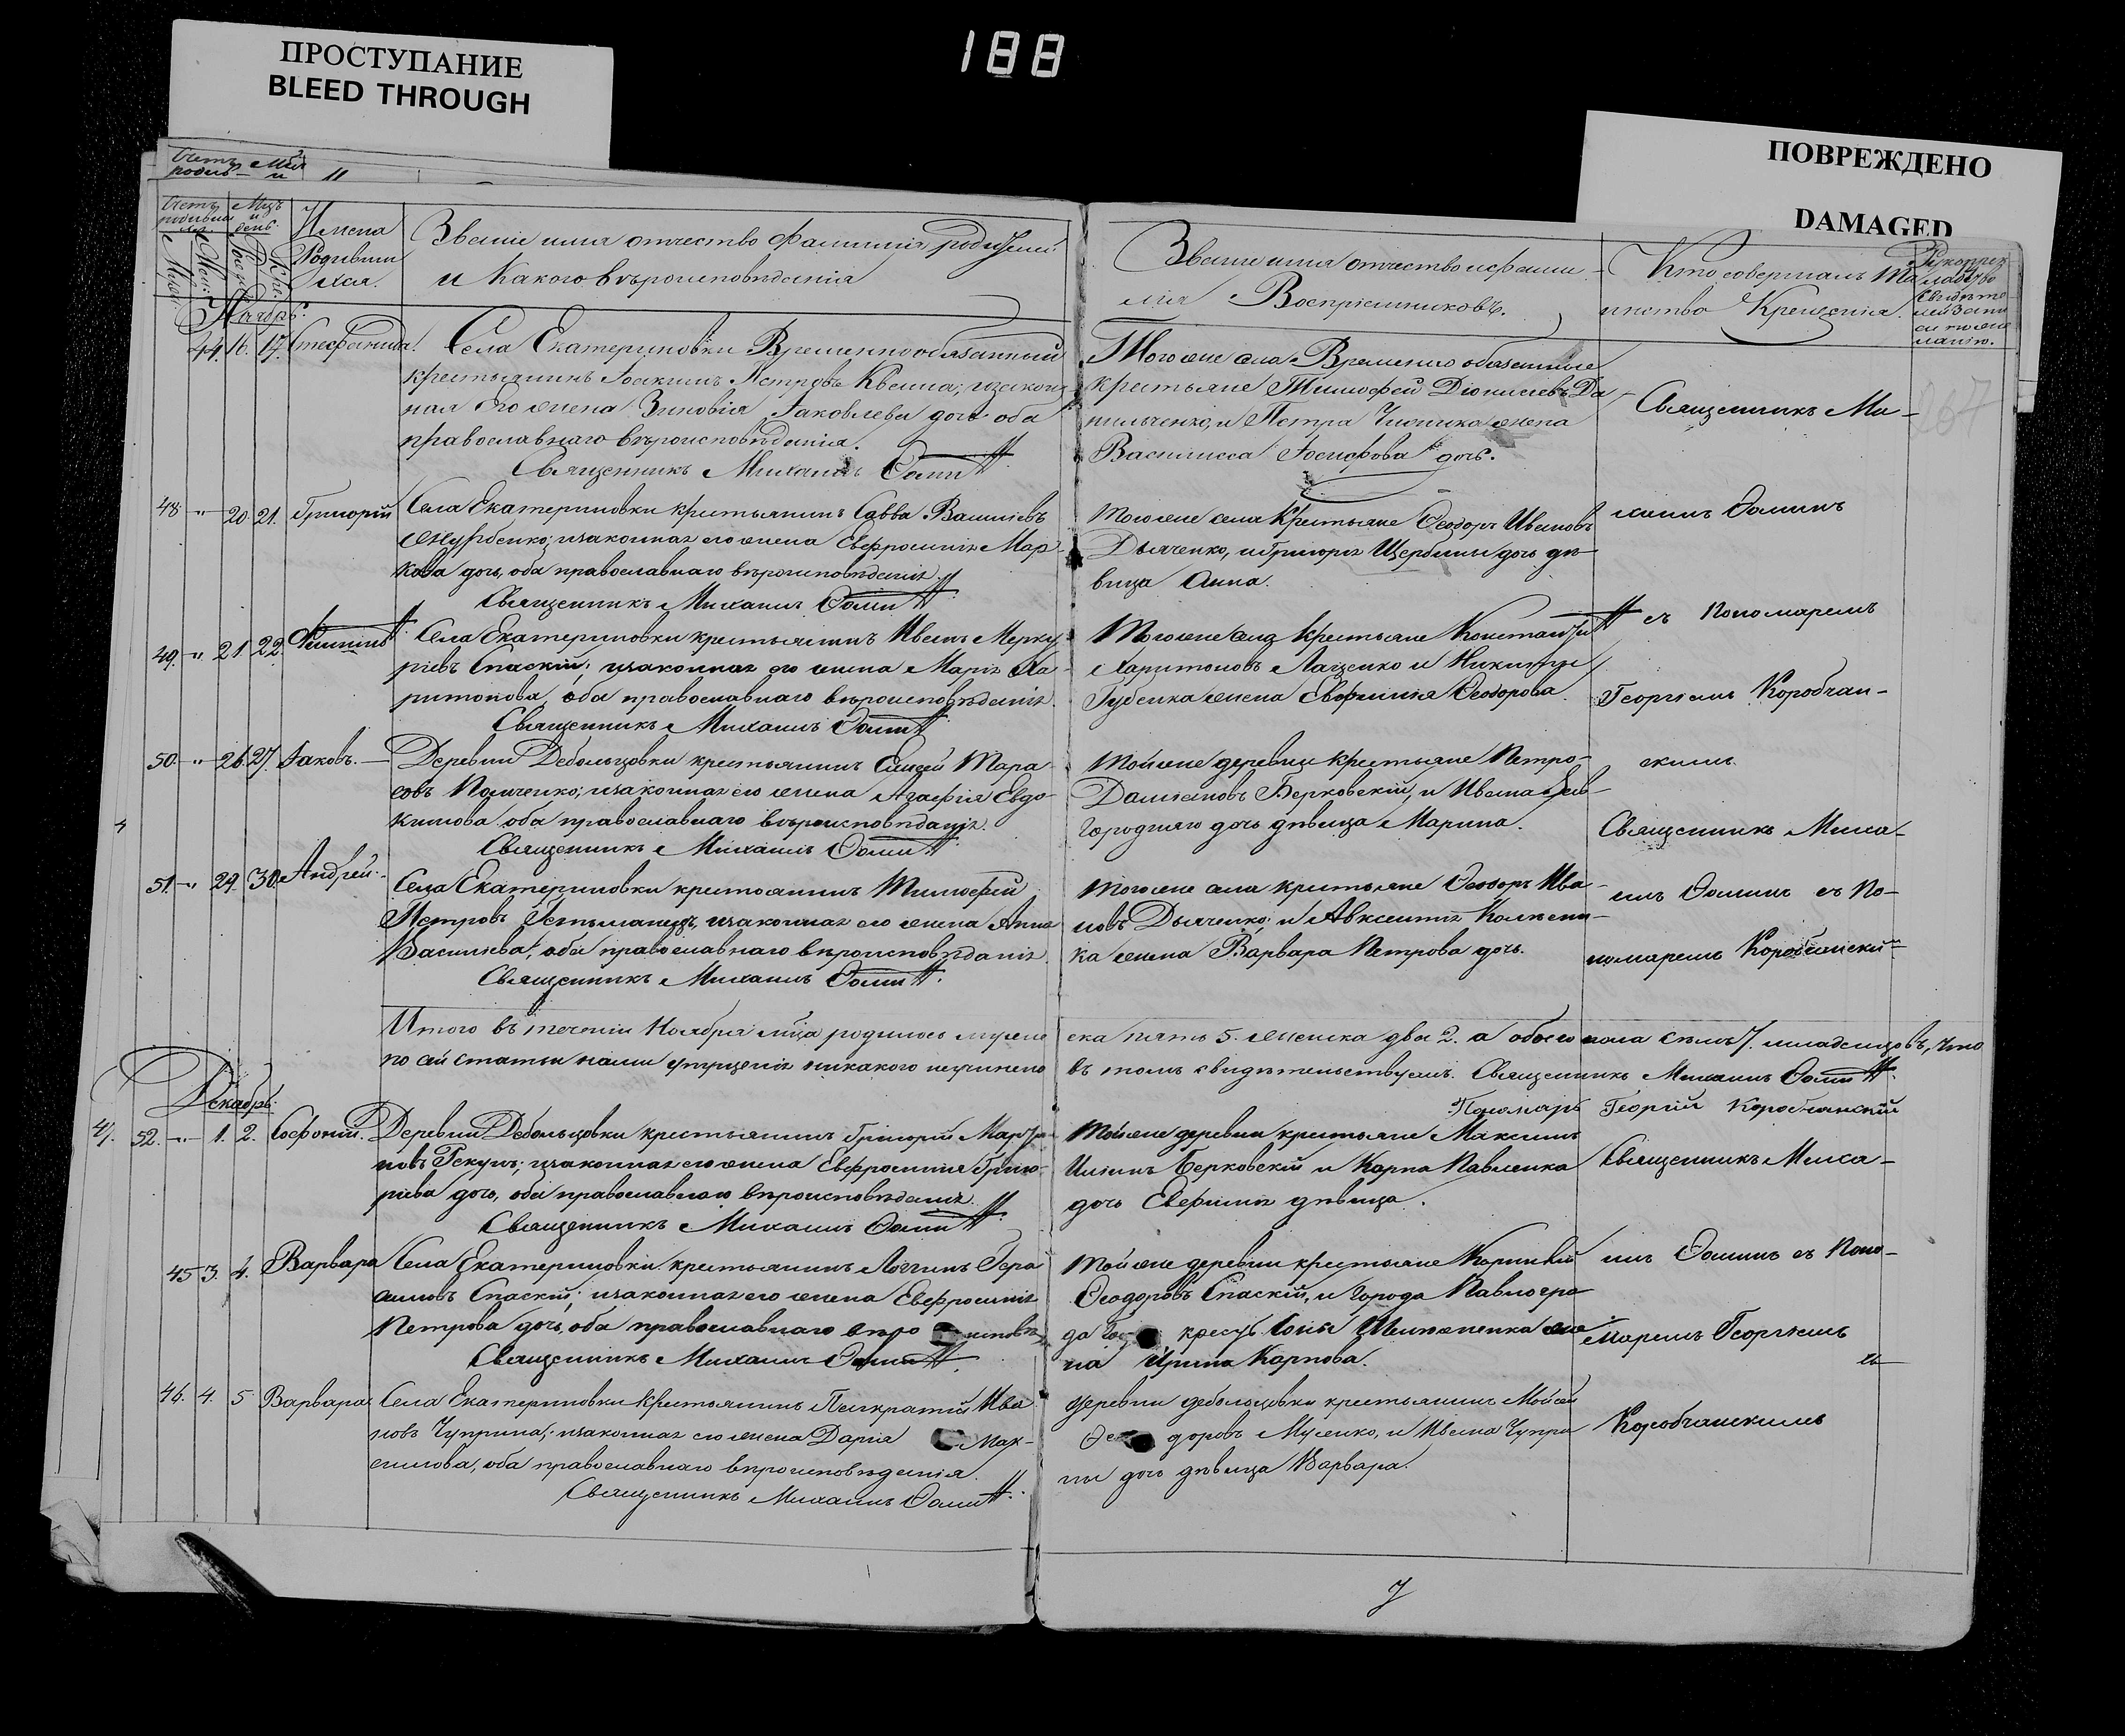 188
ПРОСТУПАНИЕ
BLEED THROUGH
ПОВРЕЖДЕНО
DAMAGED
Счетъ
11
Счетъ родившихся.
Мцъ и день.
Имена Родившихся.
Званіе имя отчество фамилія родителей
и какого вѣроисповѣданія
Званіе имя отчество и фами-
лія Воспріемниковъ.
Кто совершалъ Та-
инство Крещенія.
Ноябрь.
44. 16. 17. Стефанида.
Села Екатериновки Временнообязанный
крестьянинъ Іоакимъ Петровъ Кваша; и закон-
ная его жена Зиновія Іаковлева дочь оба
православнаго вѣроисповѣданія.
Священникъ Михаилъ Ѳоминъ
Того же села Временно обязанные
крестьяне Тимофей Діонисіевъ Да-
нильченко, и Петра жена
Василисса Іосифова дочь.
Священникъ Ми-
267
48. " 20. 21. Григорій
Села Екатериновки крестьянинъ Савва Василіевъ
и законная его жена Евфросинія Мар-
кова дочь, оба православнаго вѣроисповѣданія.
Священникъ Михаилъ Ѳоминъ
Того же села крестьяне Ѳеодоръ Ивановъ
Дьяченко, и Григорія Щербины дочь дѣ-
вица Анна.
хаилъ Ѳоминъ
49. " 21. 22. Филиппъ
Села Екатериновки крестьянинъ Иванъ Мерку-
ріевъ Спаскій; и законная его жена Марія Ха-
ритонова, оба православнаго вѣроисповѣданія.
Священникъ Михаилъ Ѳоминъ
Того же села крестьяне Константинъ
Харитоновъ Лащенко и Никиты
Губенка жена Евфимія Ѳеодорова.
съ Пономаремъ
Георгіемъ Коробчан-
50. " 26. 27. Іаковъ.
Деревни Дебольцовки крестьянинъ Елисей Тара-
совъ и законная его жена Агафія Евдо-
кимова оба православнаго вѣроисповѣданія.
Священникъ Михаилъ Ѳоминъ
Той же деревни крестьяне Петро-
Даміановъ Берковскій, и Ивана
Городняго дочь дѣвица Марина.
скимъ.
Священникъ Миха-
51. " 29. 30. Андрей.
Села Екатериновки крестьянинъ Тимофей
Петровъ и законная его жена Анна
Василіева, оба православнаго вѣроисповѣданія.
Священникъ Михаилъ Ѳоминъ
Того же села крестьяне Ѳеодоръ Ива-
новъ Дьяченко; и Авксентія Колѣсни-
ка жена Варвара Петрова дочь.
илъ Ѳоминъ съ По-
номаремъ Коробчански
Итого въ теченіи Ноября мѣца родилось муже-
ска пять 5. женска два 2. а обоего пола семь 7. младенцовъ, что
по сей статьи нами упущенія никакого неучинено
въ томъ свидѣтельствуемъ. Священникъ Михаилъ Ѳоминъ
Пономарь Георгій Коробчанскій
Декабрь.
47. 52. " 1. 2. Софоній.
Деревни Дебольцовки крестьянинъ Григорій Марты-
новъ и законная его жена Евфросинія Григо-
ріева дочь, оба православнаго вѣроисповѣданія.
Священникъ Михаилъ Ѳоминъ
Той же деревни крестьяне Максимъ
Берковскій и Карпа Павленка
дочь Евфимія дѣвица.
Священникъ Миха-
45 3. 4. Варвара
Села Екатериновки крестьянинъ Логгинъ Гера-
симовъ Спаскій; и законная его жена Евфросинія
Петрова дочь, оба православнаго вѣро исповѣ
Священникъ Михаилъ Ѳоминъ
Той же деревни крестьяне Корнилій
Ѳеодоровъ Спаскій, и города Павлогра-
да же-
на Ирина Карпова.
илъ Ѳоминъ съ Поно-
маремъ Георгіемъ
46. 4. 5 Варвара
Села Екатериновки крестьянинъ Панкратій Ива-
новъ Чуприна; и законная его жена Дарія Мак-
симова, оба православнаго вѣроисповѣданія.
Священникъ Михаилъ Ѳоминъ
деревни дебольцовки крестьянинъ Мойсей
Ѳео доровъ Мусенко, и Ивана Чупри-
ны дочь дѣвица Варвара.
Коробчанскимъ